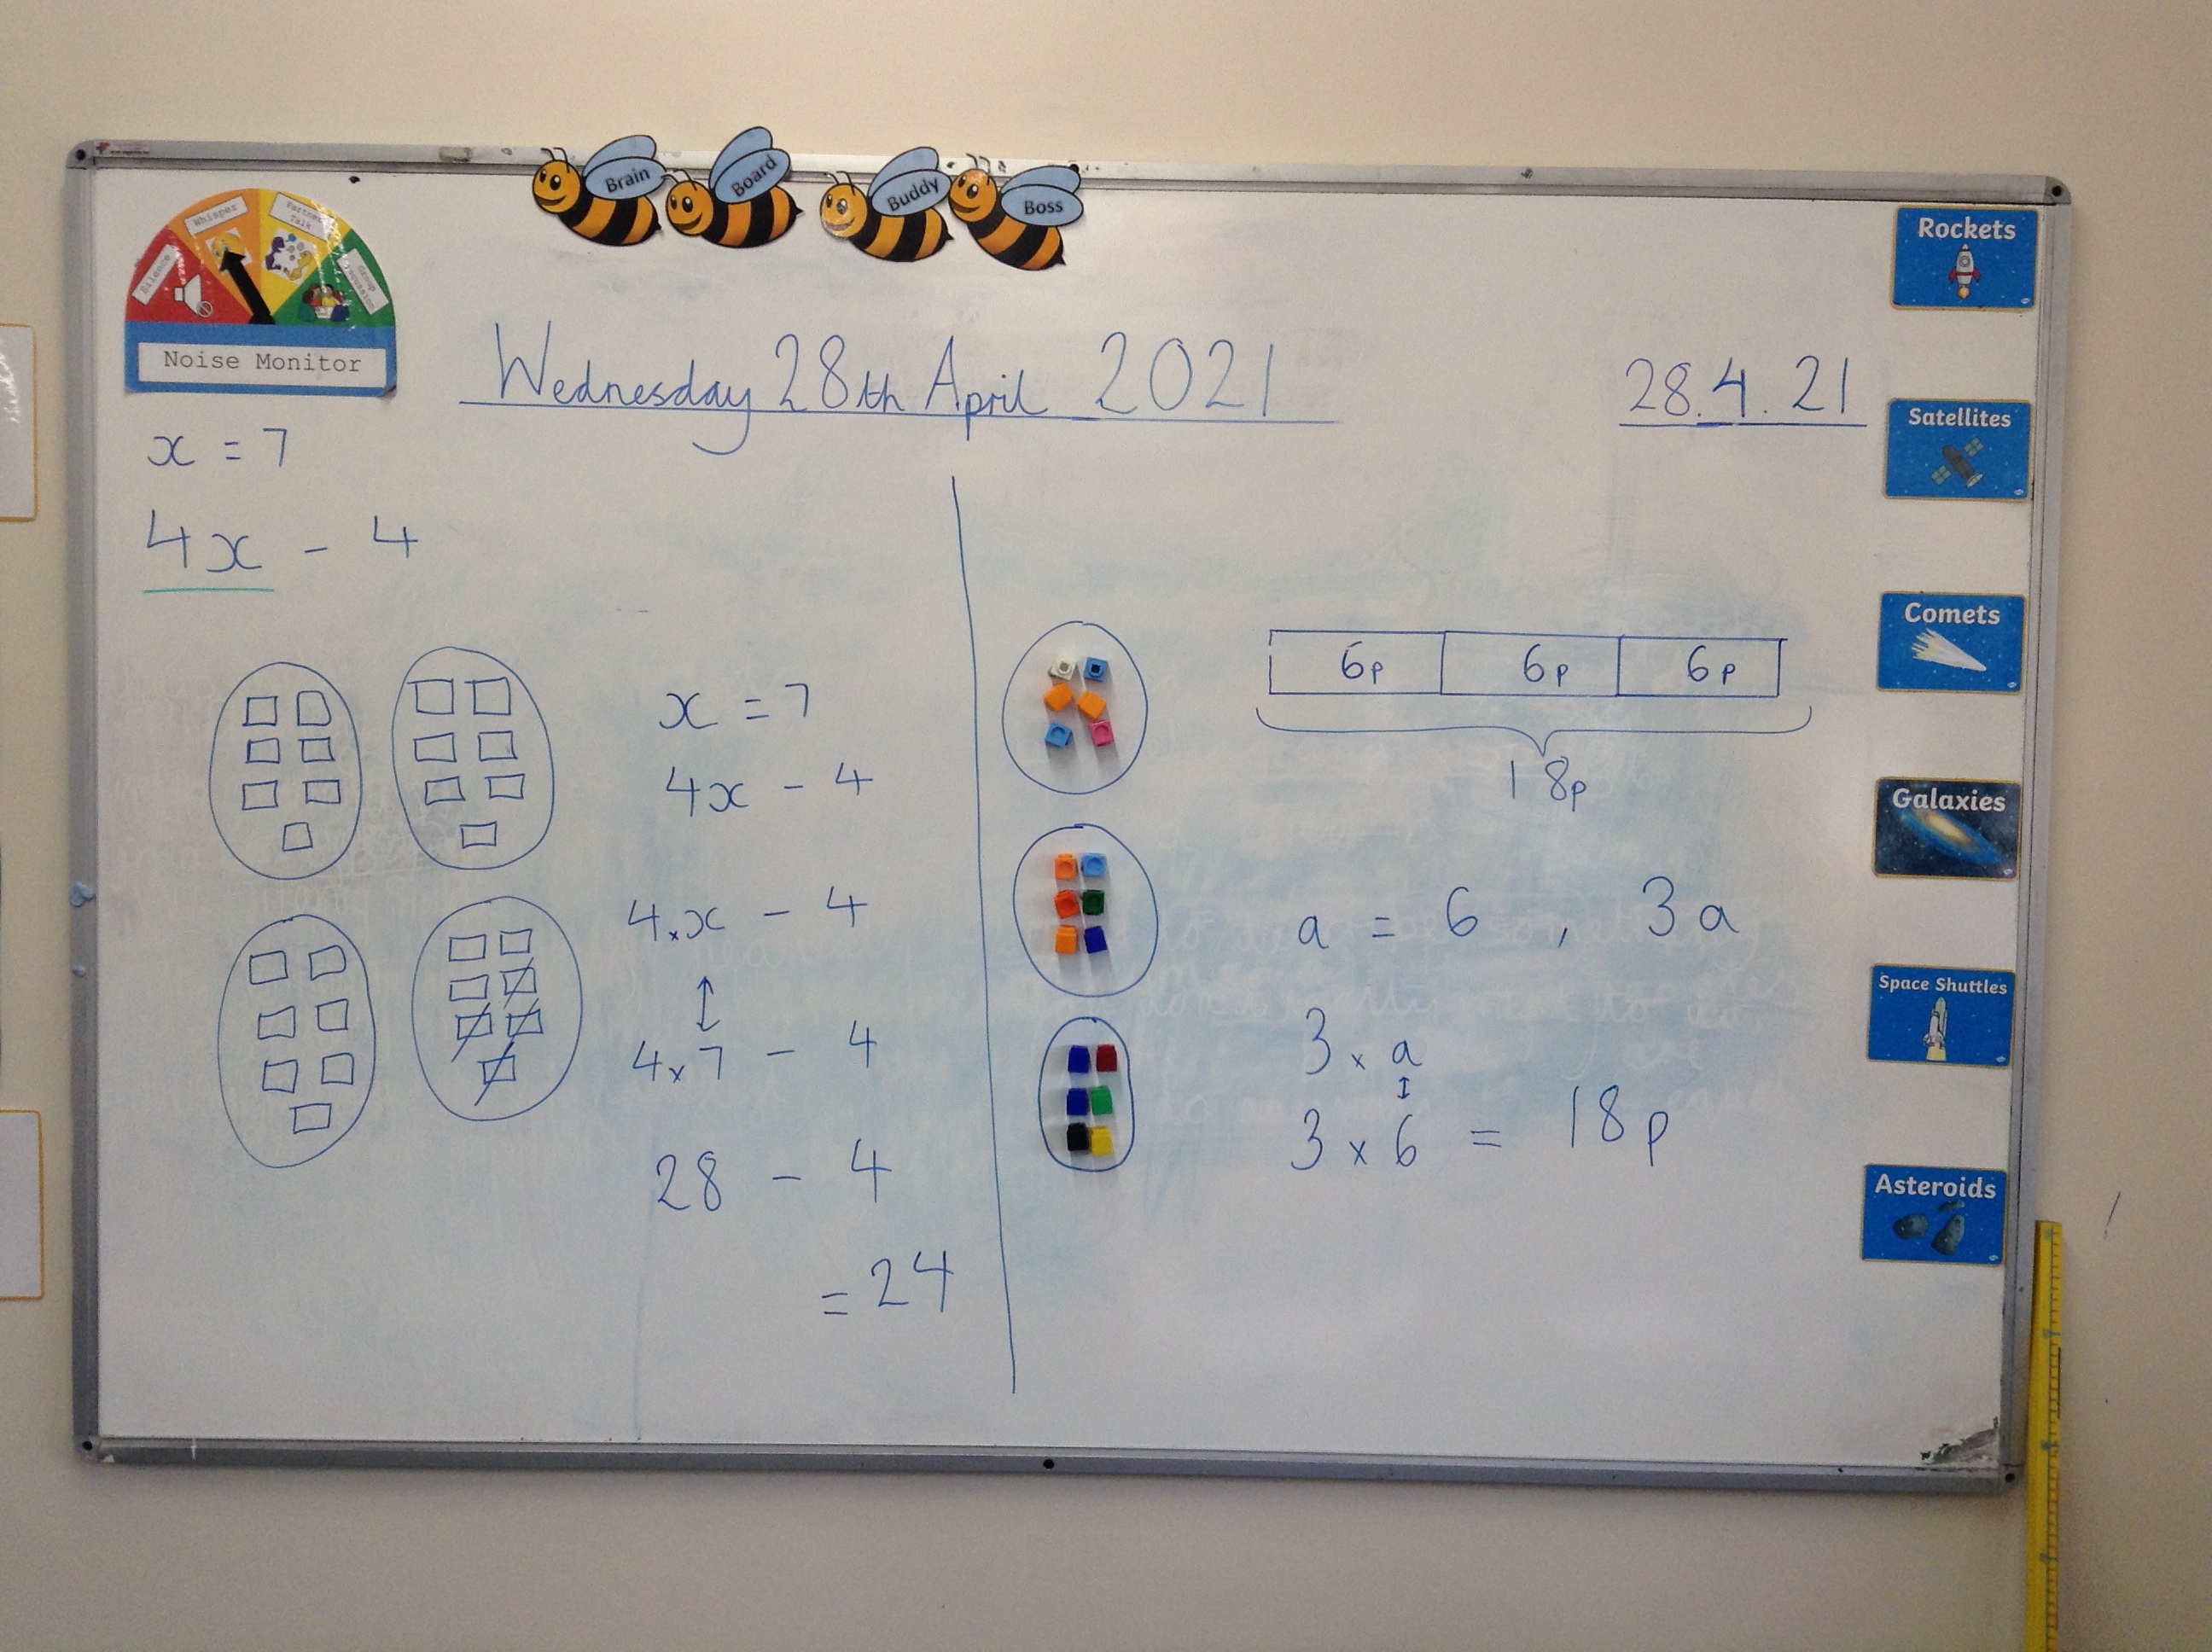 Brain Board Buddy Boss
Silence Whisper Partner Talk Group
Noise Monitor
Wednesday 28th April 2021
28.4.21
x = 7
4x - 4
x = 7
4x - 4
4×x - 4
4×7 - 4
28 - 4
= 24
6p 6p 6p
18p
a = 6 , 3a
3 × a
3 × 6 = 18p
Rockets
Satellites
Comets
Galaxies
Space Shuttles
Asteroids